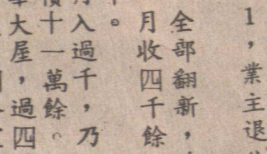 1，業主退
全部翻新，
月收四千餘
。
月入過千，乃
價十一萬餘。
大屋，過四